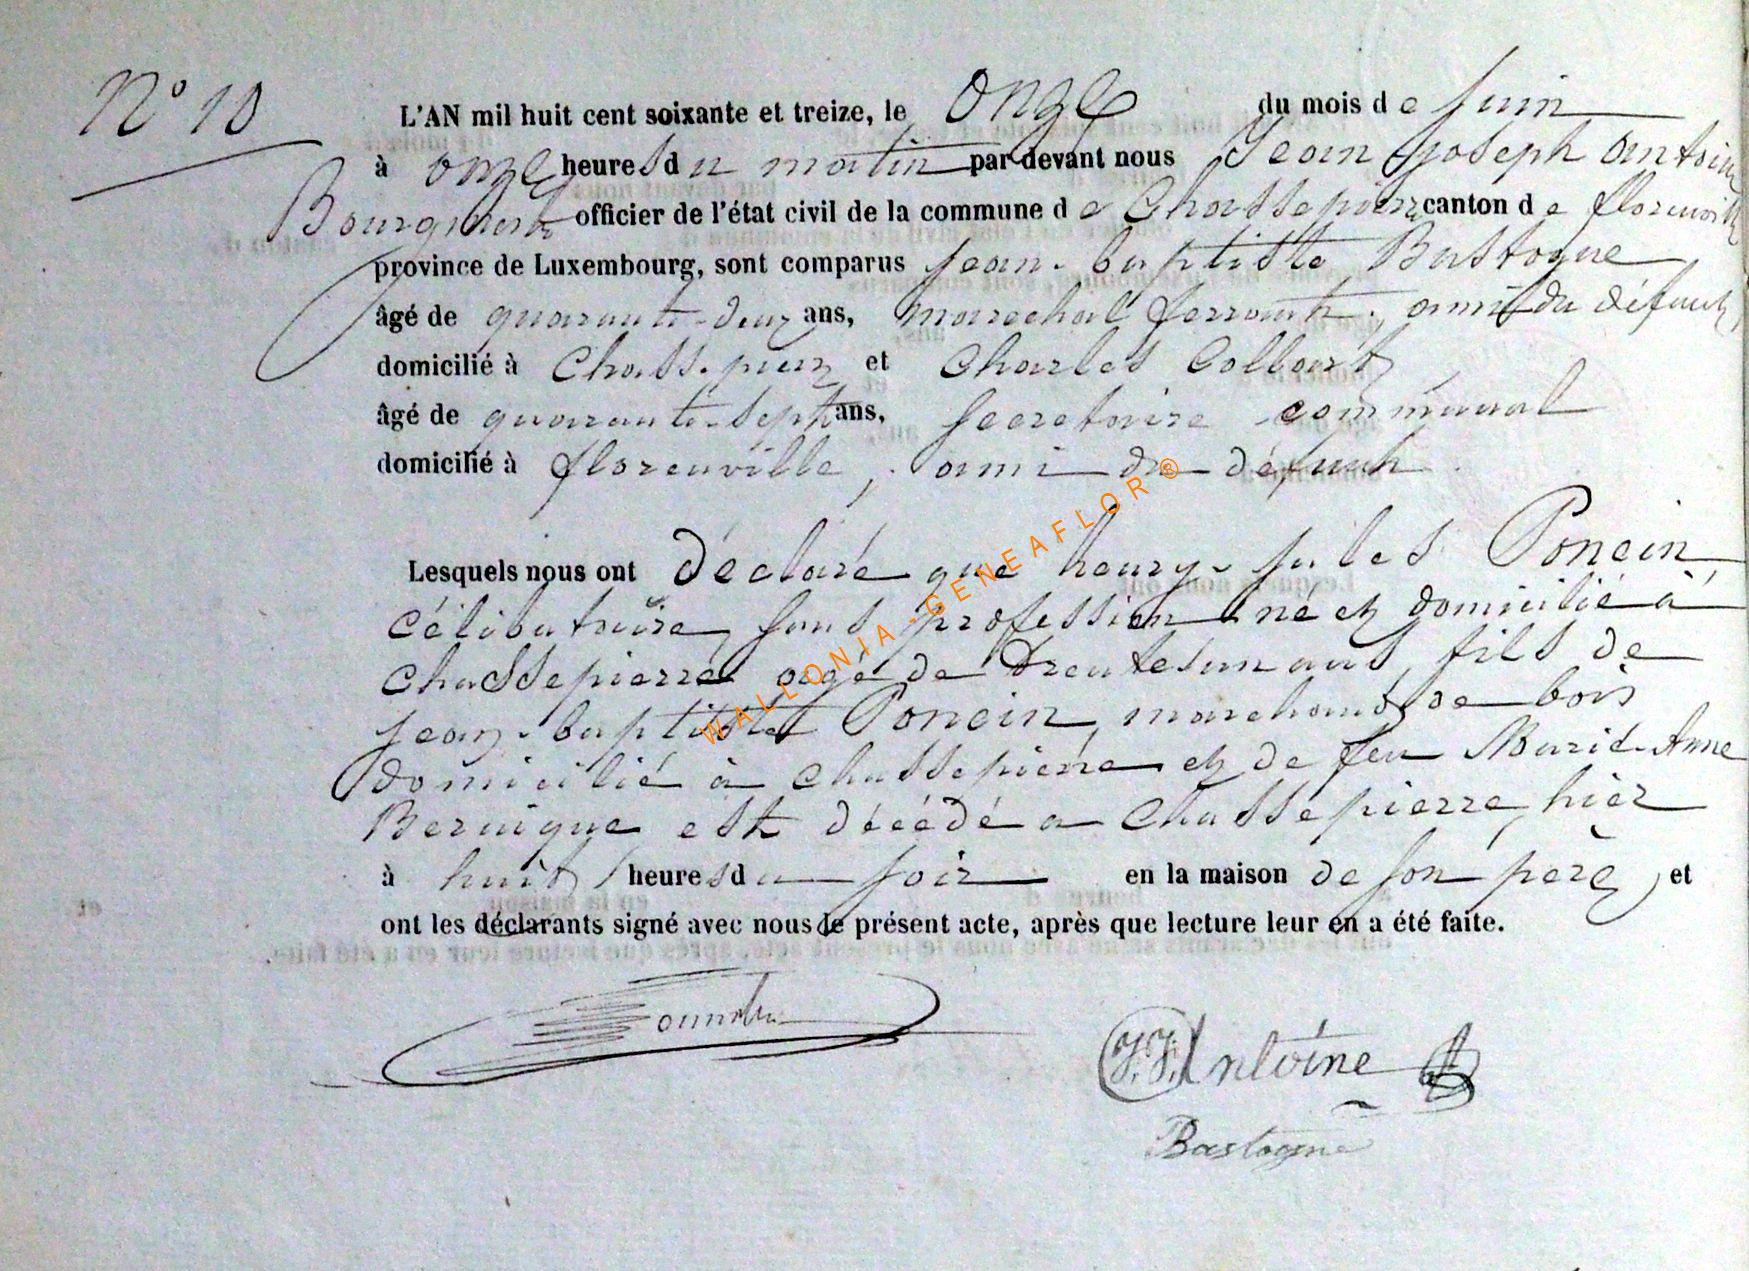 N° 10
L'AN mil huit cent soixante et treize, le onze du mois de juin
à onze heures du matin par devant nous Jean Joseph Antoine
officier de l'état civil de la commune de Chassepierre canton de florenville
province de Luxembourg, sont comparus jean-baptiste Bastogne
âgé de quarante-deux ans, marechal ferrant, ami du défunt
domicilié à Chassepierre et Charles Collart
âgé de quarante-sept ans, secretaire communal
domicilié à florenville, ami du défunt
Lesquels nous ont déclaré que henry-jules Poncin,
célibataire sans profession né et domicilié à
chassepierre agé de trente un ans, fils de
jean-baptiste Poncin, marchand de bois
domicilié à chassepierre et de feu Marie-Anne
est décédé a chassepierre hier
à huit heures du soir en la maison de son père, et
ont les déclarants signé avec nous le présent acte, après que lecture leur en a été faite.
J. J. Antoine
Bastogne
WALLONIA-GENEAFLOR®